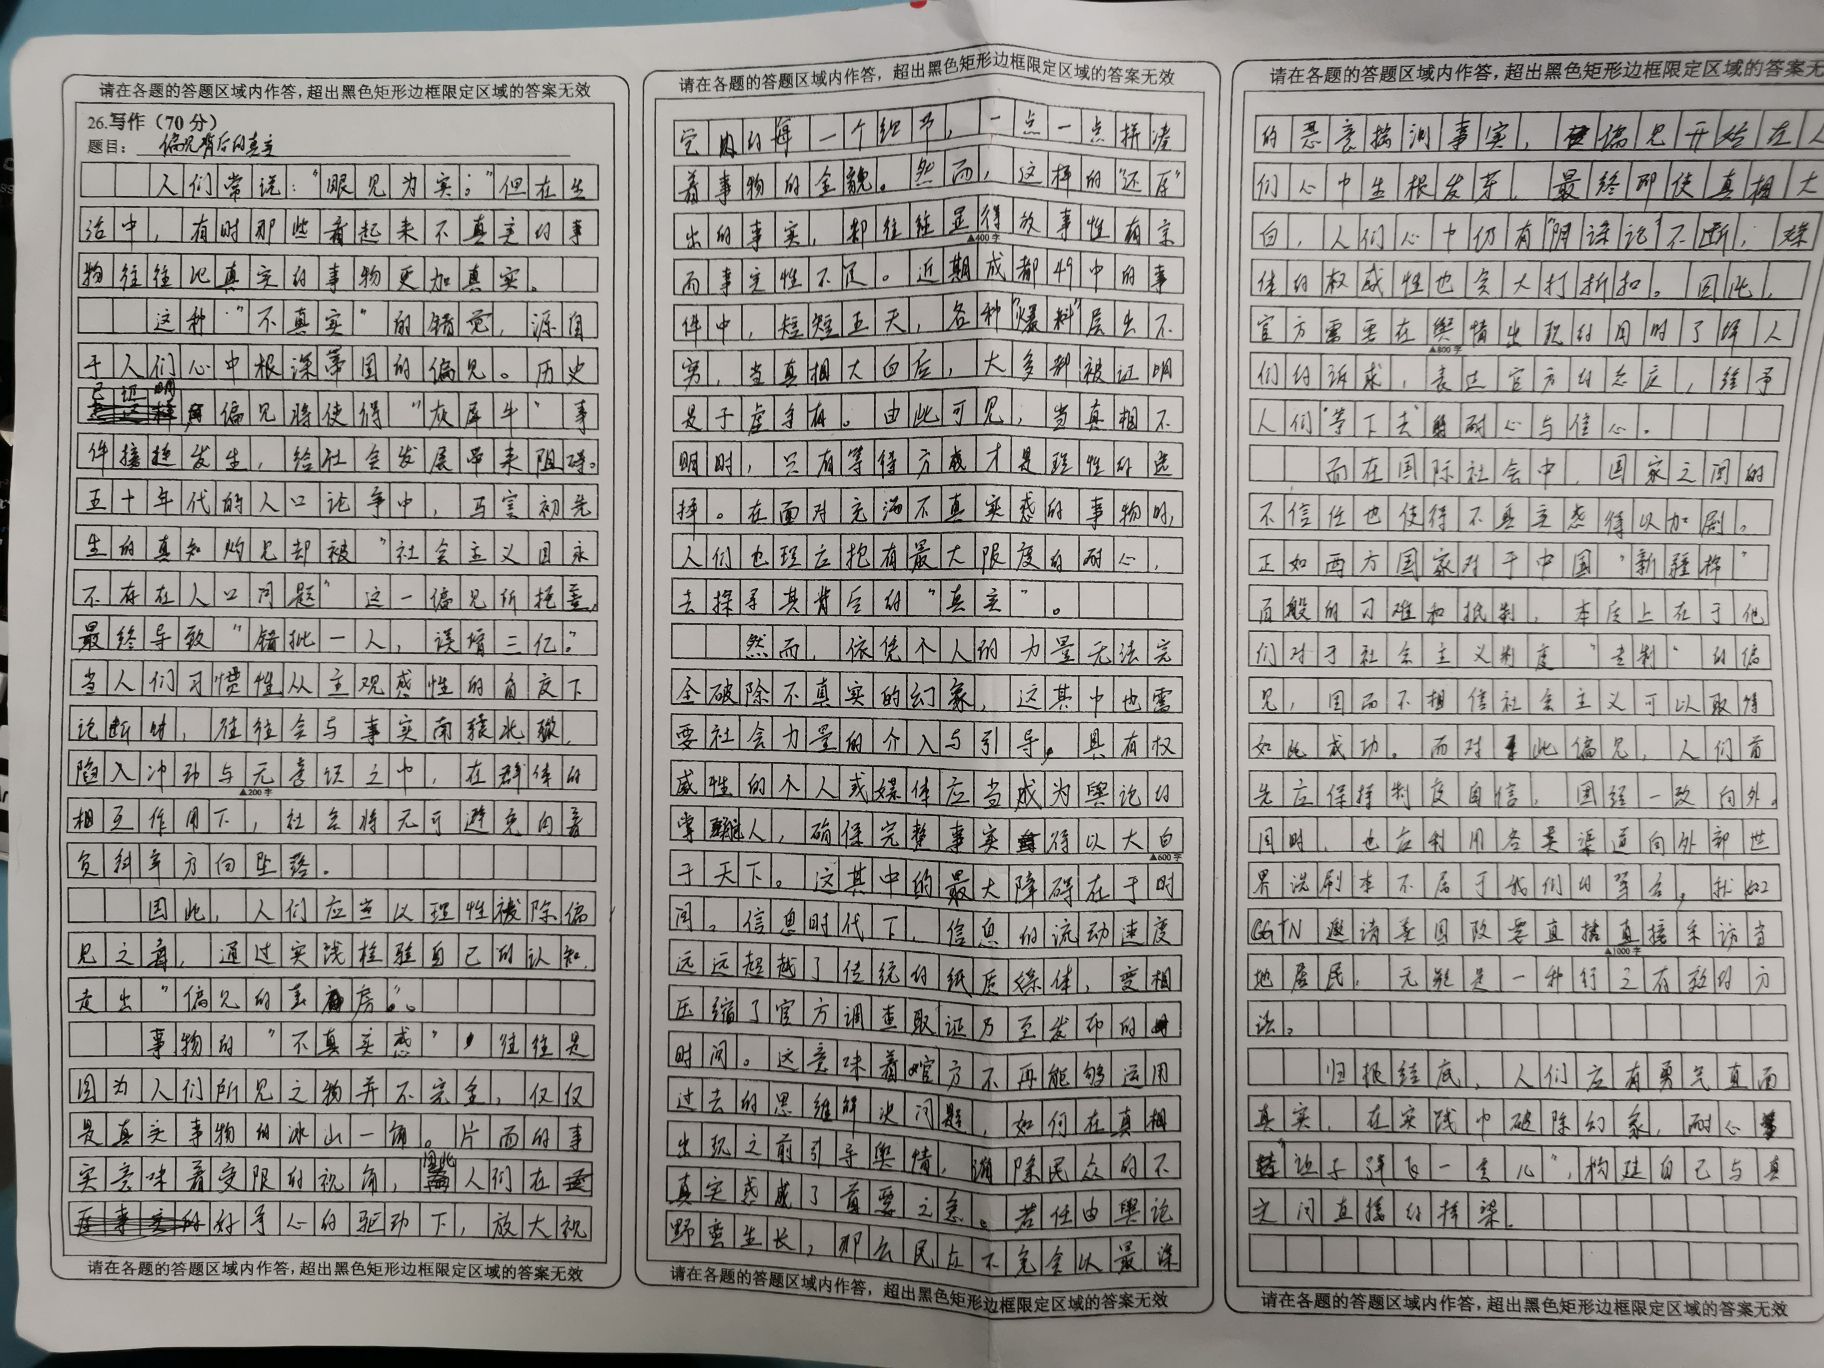 请在各题的答题区域内作答，超出黑色矩形边框限定区域的答案无效
26.写作（70分）
题目：偏见背后的真实
人们常说："眼见为实；"但在生
活中，有时那些看起来不真实的事
物往往比真实的事物更加真实。
这种"不真实"的错觉，源自
于人们心中根深蒂固的偏见。历史
已证明偏见将使得"灰犀牛"事
件接连发生，给社会发展带来阻碍。
五十年代的人口论争中，马寅初先
生的真知灼见却被"社会主义国永
不存在人口问题"这一偏见所掩盖，
最终导致"错批一人，误增三亿。"
当人们习惯性从主观感性的角度下
论断时，往往会与事实南辕北辙，
陷入冲动与无意识之中，在群体的
▲200字
相互作用下，社会将无可避免向着
负斜率方向坠落。
因此，人们应当以理性破除偏
见之毒，通过实践检验自己的认知，
走出"偏见的房"。
事物的"不真实感"，往往是
因为人们所见之物并不完全，仅仅
是真实事物的冰山一角。片面的事
实意味着受限的视角，因此人们在
好奇心的驱动下，放大视
请在各题的答题区域内作答，超出黑色矩形边框限定区域的答案无效
请在各题的答题区域内作答，超出黑色矩形边框限定区域的答案无效
完内的每一个细节，一点一点拼凑
着事物的全貌。然而，这样的"还原"
出的事实，却往往显得故事性有余
▲400字
而事实性不足。近期成都49中的事
件中，短短五天，各种"爆料"层出不
穷，当真相大白后，大多都被证明
是子虚乌有。由此可见，当真相不
明时，只有等待方或才是理性的选
择。在面对充满不真实感的事物时，
人们也理应抱有最大限度的耐心，
去探寻其背后的"真实"。
然而，依凭个人的力量无法完
全破除不真实的幻象，这其中也需
要社会力量的介入与引导。具有权
威性的个人或媒体应当成为舆论的
掌舵人，确保完整事实得以大白
▲600字
于天下。这其中的最大障碍在于时
间。信息时代下，信息的流动速度
远远超越了传统的纸质媒体，变相
压缩了官方调查取证乃至发布的
时间。这意味着官方不再能够运用
过去的思维解决问题，如何在真相
出现之前引导舆情，消除民众的不
真实感成了首要之急。若任由舆论
野蛮生长，那么民众不免会以最深
请在各题的答题区域内作答，超出黑色矩形边框限定区域的答案无效
请在各题的答题区域内作答，超出黑色矩形边框限定区域的答案无
的恶意揣测事实，使偏见开始在人
们心中生根发芽，最终即使真相大
白，人们心中仍有"阴谋论"不断，媒
体的权威性也会大打折扣。因此，
官方需要在舆情出现的同时了解人
▲800字
们的诉求，表达官方的态度，给予
人们"等下去"的耐心与信心。
而在国际社会中，国家之间的
不信任也使得不真实感得以加剧。
正如西方国家对于中国"新疆棉"
百般的刁难和抵制，本质上在于他
们对于社会主义制度"专制"的偏
见，因而不相信社会主义可以取得
如此成功。而对于此偏见，人们首
先应保持制度自信，团结一致向外。
同时，也应利用各类渠道向外部世
界洗刷本不属于我们的罪名，就如
CGTN邀请美国政要直接直接采访当
▲1000字
地居民，无疑是一种行之有效的方
法。
归根结底，人们应有勇气直面
真实，在实践中破除幻象，耐心
"让子弹飞一会儿"，构建自己与真
实间直接的桥梁。
请在各题的答题区域内作答，超出黑色矩形边框限定区域的答案无效